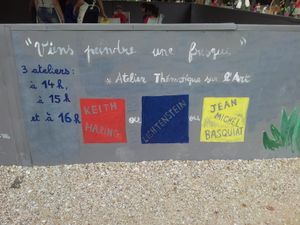 "Viens peindre une fresque"
3 ateliers:
à 14h,
à 15h
et à 16h
Atelier Thématique sur l'Art
KEITH
HARING
ou
LICHTENSTEIN
ou
JEAN
MICHEL
BASQUIAT